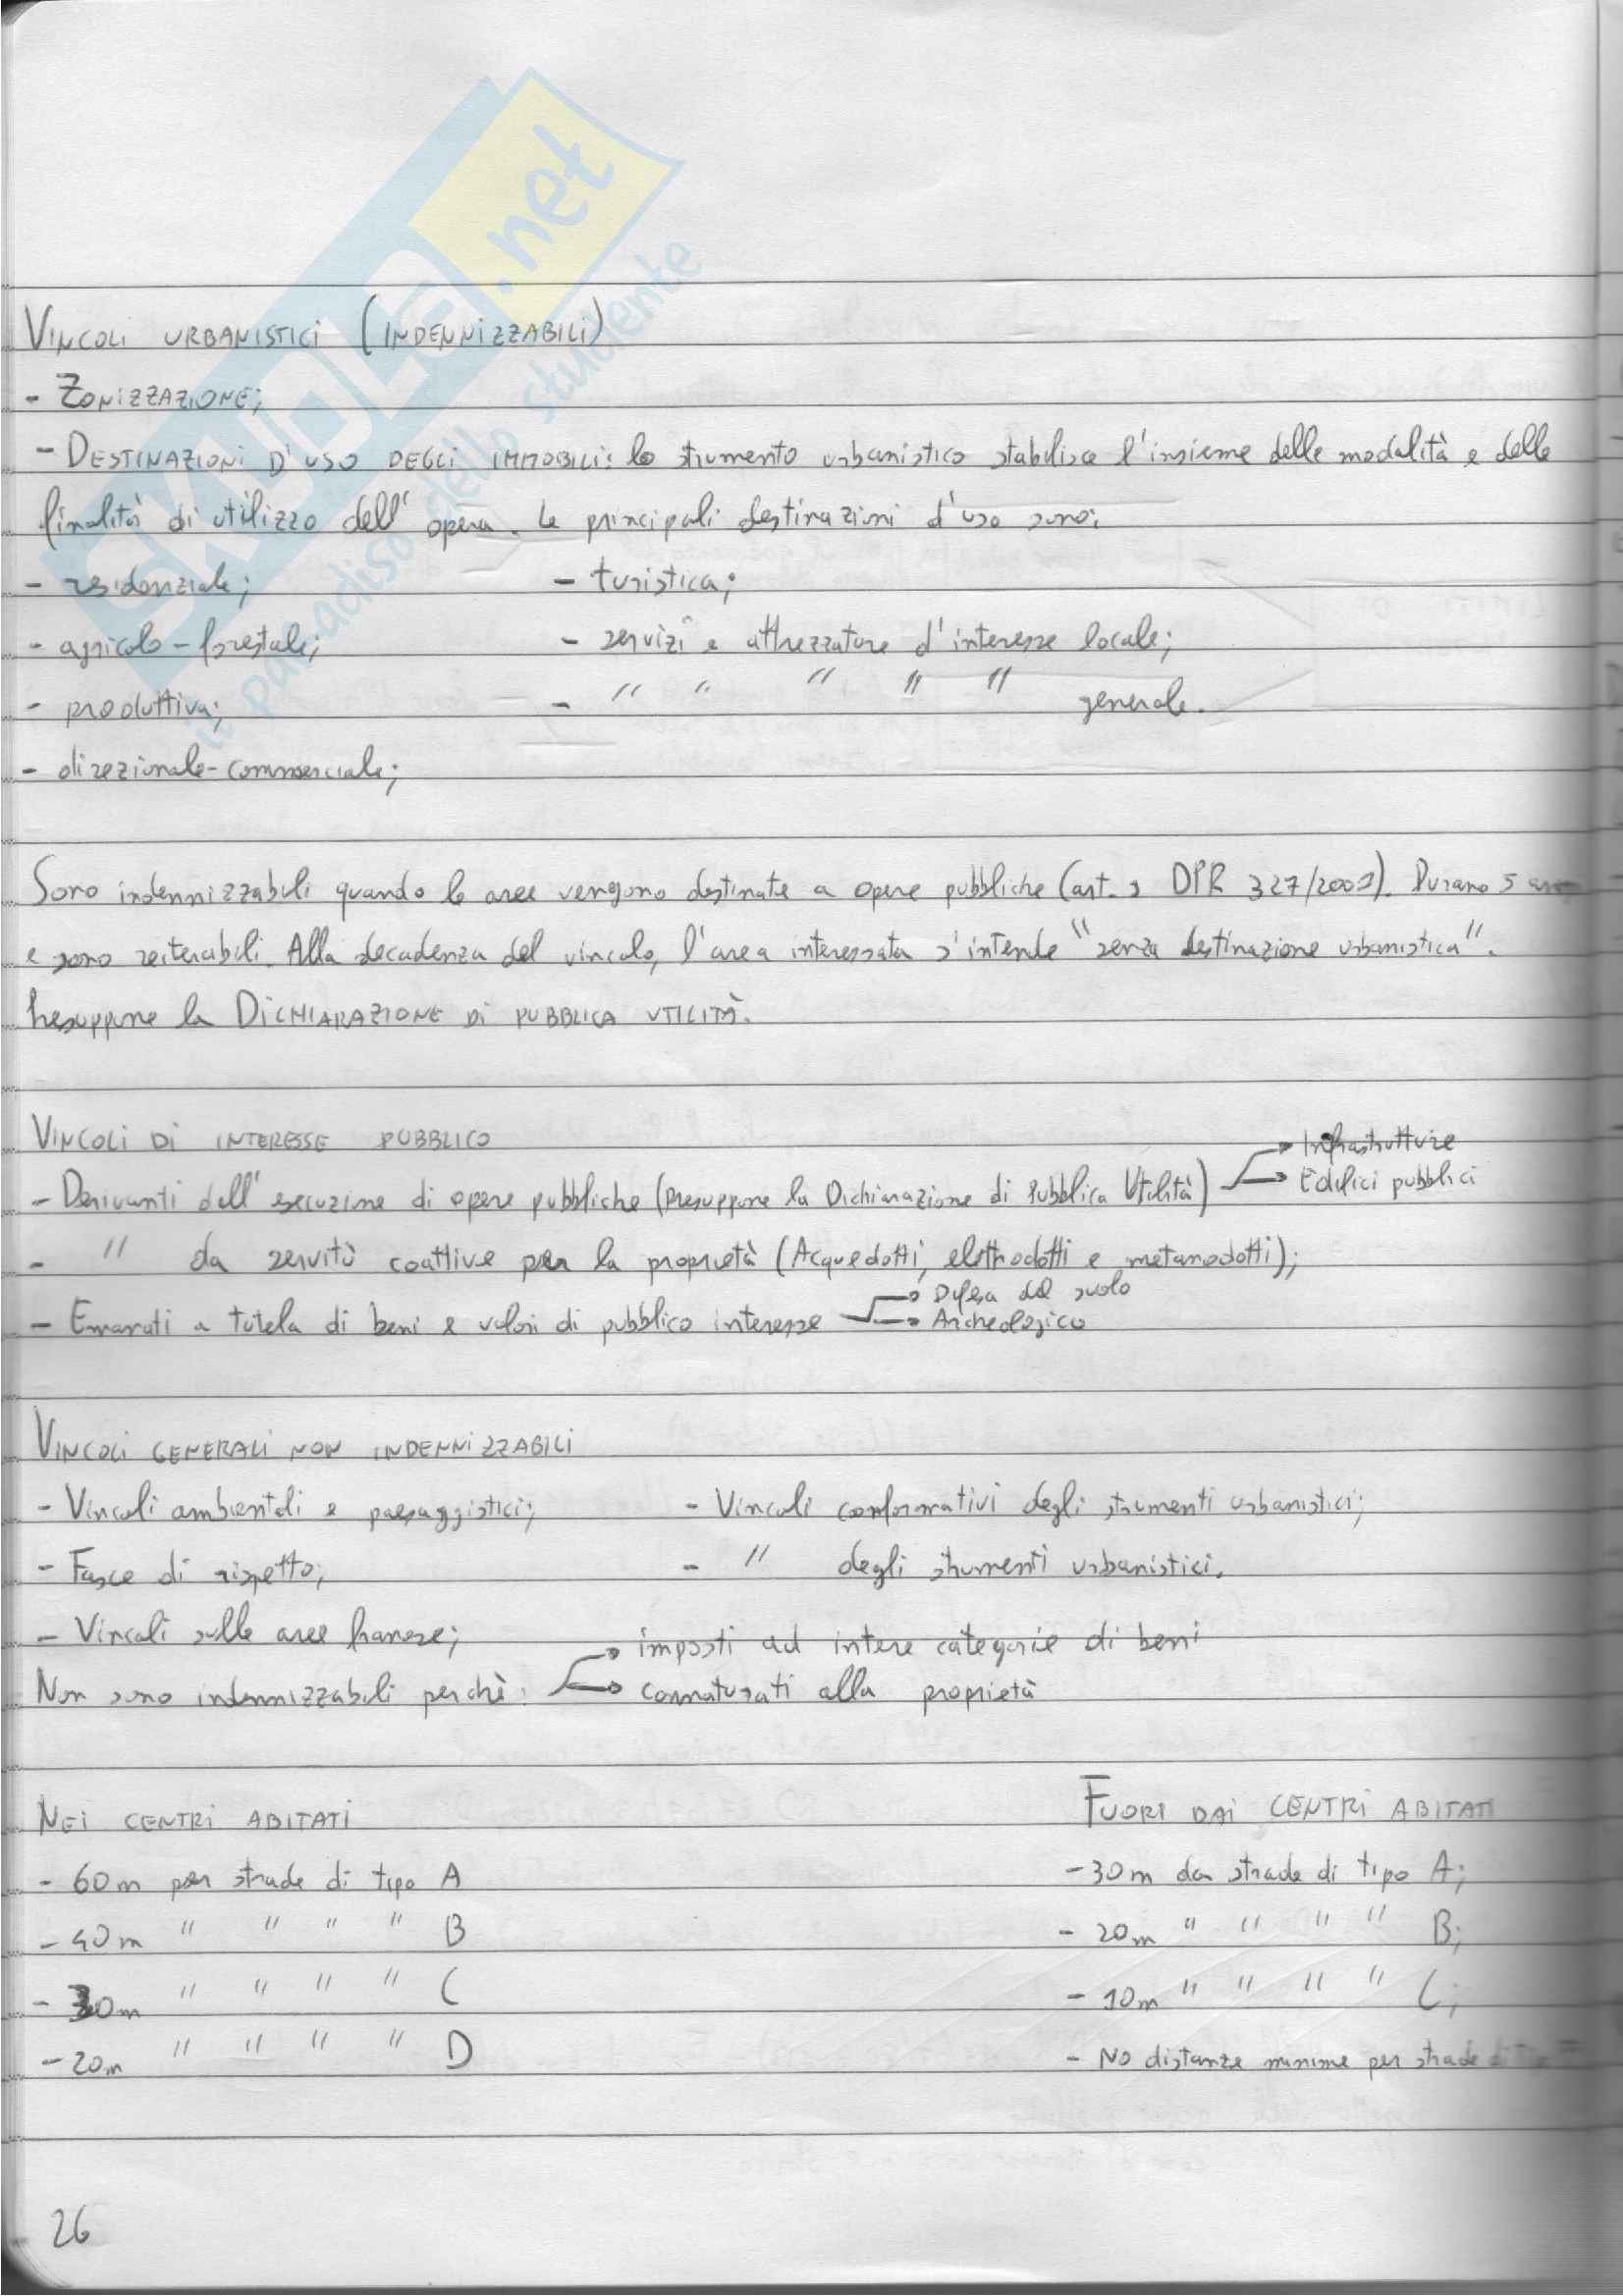 SKUOLA.net
il paradiso dello studente
VINCOLI URBANISTICI (INDENNIZZABILI)
- ZONIZZAZIONE;
- DESTINAZIONI D'USO DEGLI IMMOBILI: lo strumento urbanistico stabilisce l'insieme delle modalità e delle
finalità di utilizzo dell'opera. Le principali destinazioni d'uso sono:
- residenziale; - turistica;
- agricolo-forestale; - servizi e attrezzature d'interesse locale;
- produttiva; - " " " " " generale.
- direzionale-commerciale;
Sono indennizzabili quando le aree vengono destinate a opere pubbliche (art. DPR 327/2001). Durano 5
e sono reiterabili. Alla decadenza del vincolo, l'area interessata s'intende "senza destinazione urbanistica".
Presuppone la DICHIARAZIONE DI PUBBLICA UTILITÀ.
VINCOLI DI INTERESSE PUBBLICO
- Derivanti dall'esecuzione di opere pubbliche (Presuppone la Dichiarazione di Pubblica Utilità) → Infrastrutture
→ Edifici pubblici
- " da servitù coattive per la proprietà (Acquedotti, elettrodotti e metanodotti);
- Emanati a tutela di beni e valori di pubblico interesse → Difesa del suolo
→ Archeologico
VINCOLI GENERALI NON INDENNIZZABILI
- Vincoli ambientali e paesaggistici; - Vincoli conformativi degli strumenti urbanistici;
- Fasce di rispetto; - " degli strumenti urbanistici.
- Vincoli sulle aree franose;
Non sono indennizzabili perchè: → imposti ad intere categorie di beni
→ connaturati alla proprietà
NEI CENTRI ABITATI FUORI DAI CENTRI ABITATI
- 60m per strade di tipo A - 30m da strade di tipo A;
- 40m " " " " B - 20m " " " " B;
- 30m " " " " C - 10m " " " " C;
- 20m " " " " D - No distanze minime per strade
26